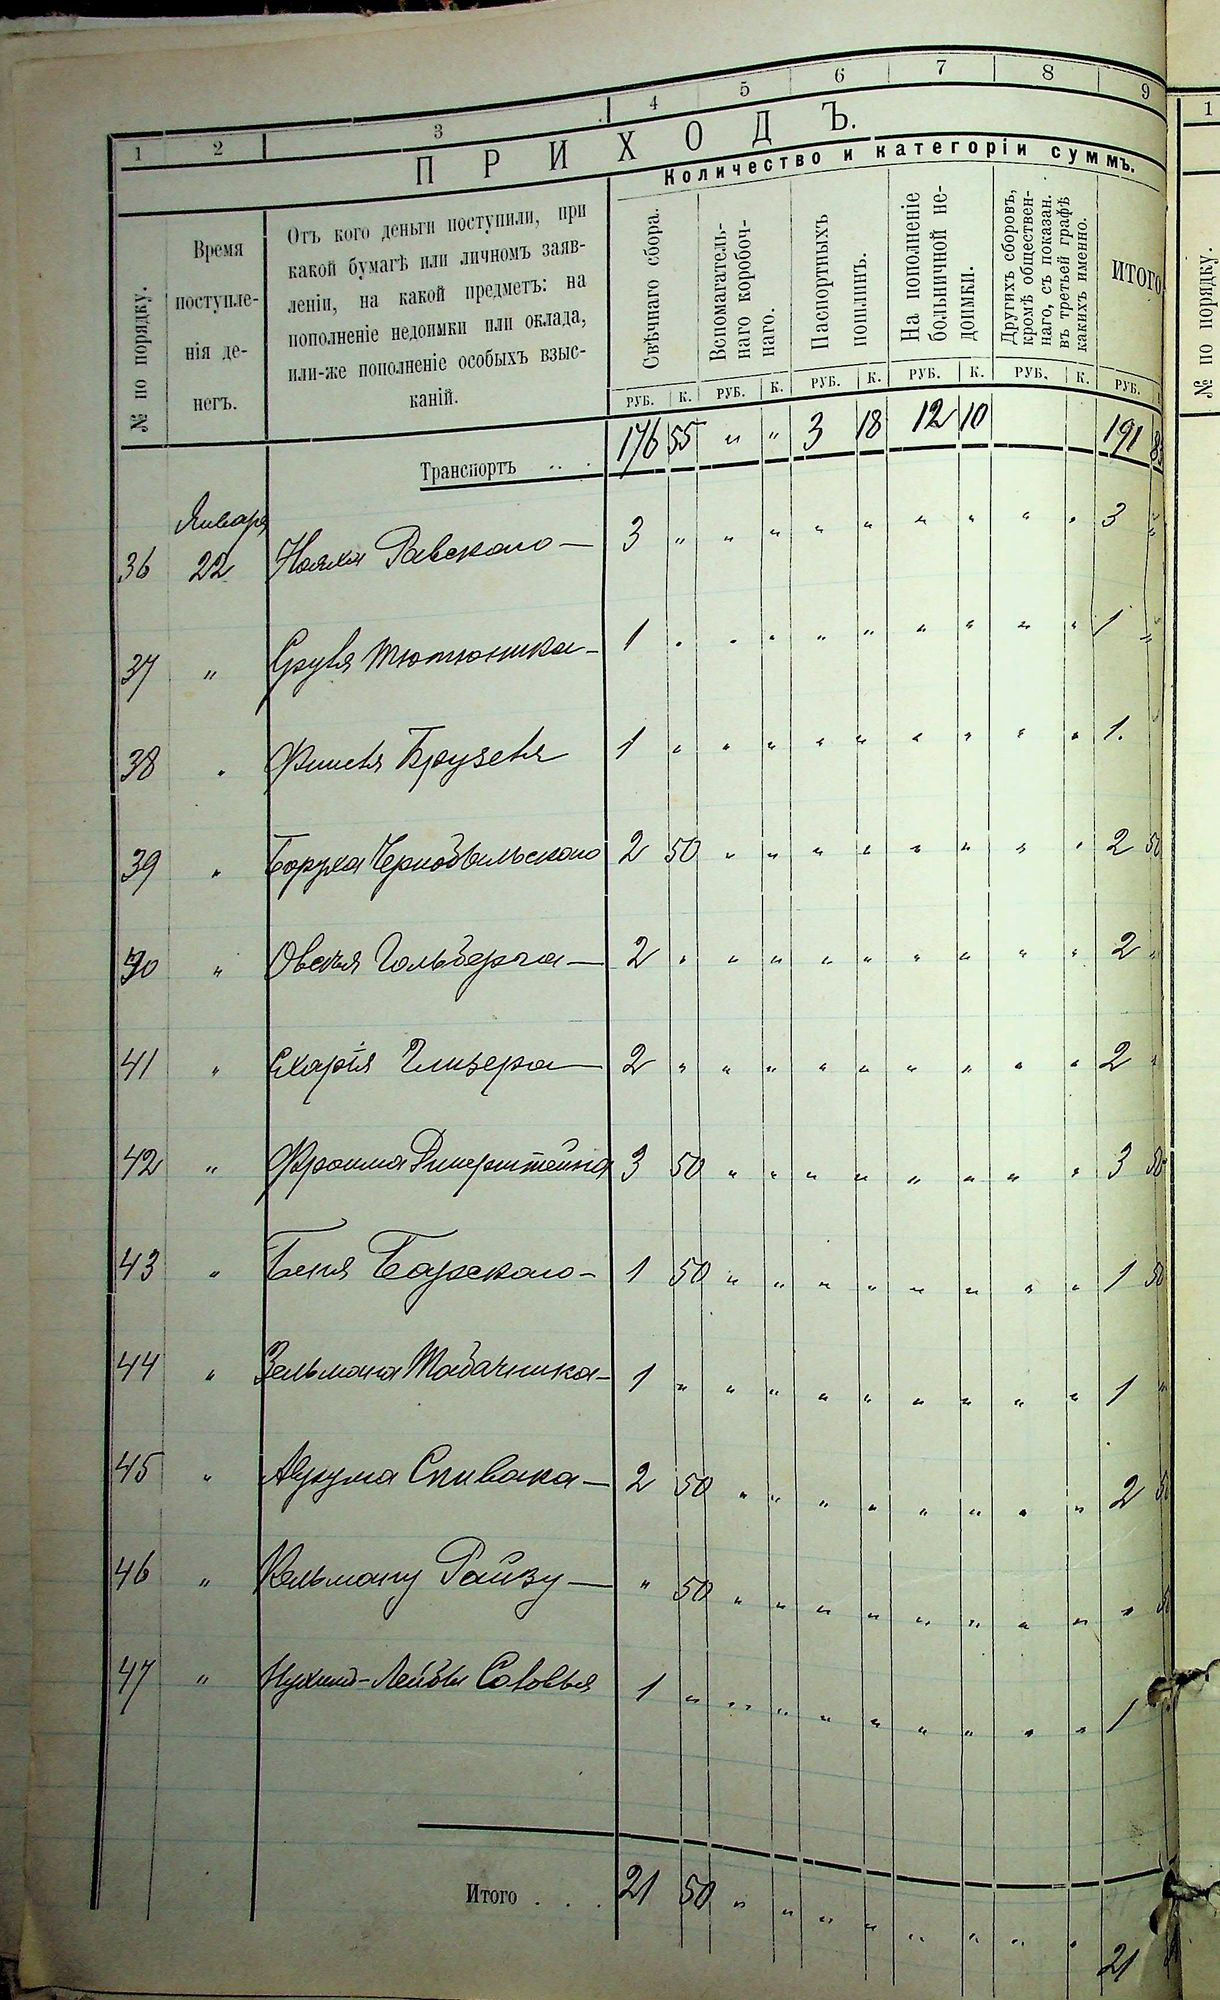 1 2 3 4 5 6 7 8 9
ПРИХОДЪ.
Количество и категоріи суммъ.
№ по порядку.
Время
поступле-
нія де-
негъ.
Отъ кого деньги поступили, при
какой бумагѣ или личномъ заяв-
леніи, на какой предметъ: на
пополненіе недоимки или оклада,
или-же пополненіе особыхъ взыс-
каній.
Свѣчнаго сбора.
Вспомагатель-
наго коробоч-
наго.
Паспортныхъ
пошлинъ.
На пополненіе
больничной не-
доимки.
Другихъ сборовъ,
кромѣ обществен-
наго, съ показан.
въ третьей графѣ
какихъ именно.
ИТОГО
РУБ. К. РУБ. К. РУБ. К. РУБ. К. РУБ. К. РУБ.
Транспортъ . . . 176 55 " " 3 18 12 10 191 83
Января
36 22 Равского — 3 " " " " " " " " " 3 "
37 " Сруля Тютюника — 1 " " " " " " " " " 1 "
38 " 1 " " " " " " " " " 1 "
39 " Боруха Чернобыльского 2 50 " " " " " " " " 2 50
40 " Овсея Гольберга — 2 " " " " " " " " " 2 "
41 " Схарія Глизера — 2 " " " " " " " " " 2 "
42 " Фроима 3 50 " " " " " " " " 3 50
43 " Беня Барского — 1 50 " " " " " " " " 1 50
44 " Зельмана Табачника — 1 " " " " " " " " " 1 "
45 " Аврума Спивака — 2 50 " " " " " " " " 2 50
46 " Кельману Райзу — " 50 " " " " " " " " " 50
47 " Нухим-Лейбы Соловья 1 " " " " " " " " " 1 "
Итого . . . 21 50 " " " " " " " " 21
1
№ по порядку.